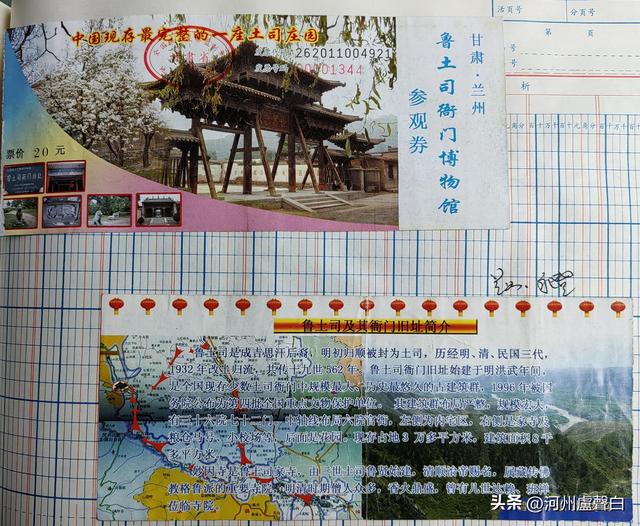 活页号
分页号
第 页
析
中国现存最完整的一座土司庄园
262011004921
00001344
票价 20 元
甘肃·兰州
鲁土司衙门博物馆
参观券
鲁土司及其衙门旧址简介
鲁土司是成吉思汗后裔，明初归顺被封为土司，历经明、清、民国三代，
1932年改土归流，共传十九世562年，鲁土司衙门旧址始建于明洪武年间，
是全国现存少数土司衙门中规模最大、历史最悠久的古建筑群，1996年被国
务院公布为第四批全国重点文物保护单位。其建筑群布局严整，规模宏大，
有三十六院七十二间，中轴线布局六院官衙，左侧为内宅区，右侧是家寺及
粮仓马号、小校场等，后面是花园，现存占地3万多平方米，建筑面积8千
多平方米。
妙因寺是鲁土司家寺，由三世土司鲁贤始建，清顺治帝赐名，属藏传佛
教格鲁派的重要寺院，明清时期僧人众多，香火鼎盛，曾有几世达赖、班禅
位临寺院。
头条 @河州盧聲白